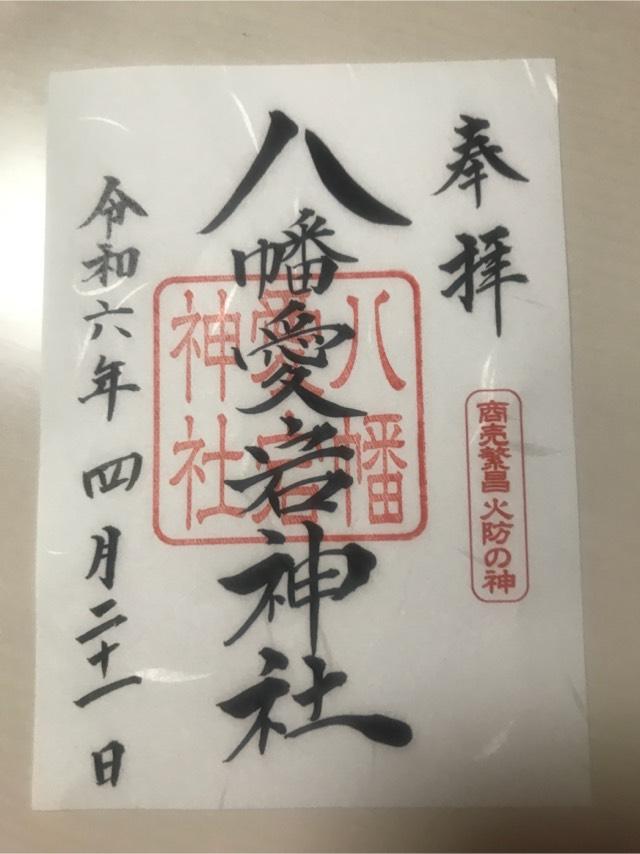 奉拝
商売繁昌 火防の神
八幡愛岩神社
八幡
愛岩
神社
令和六年 四月二十一日